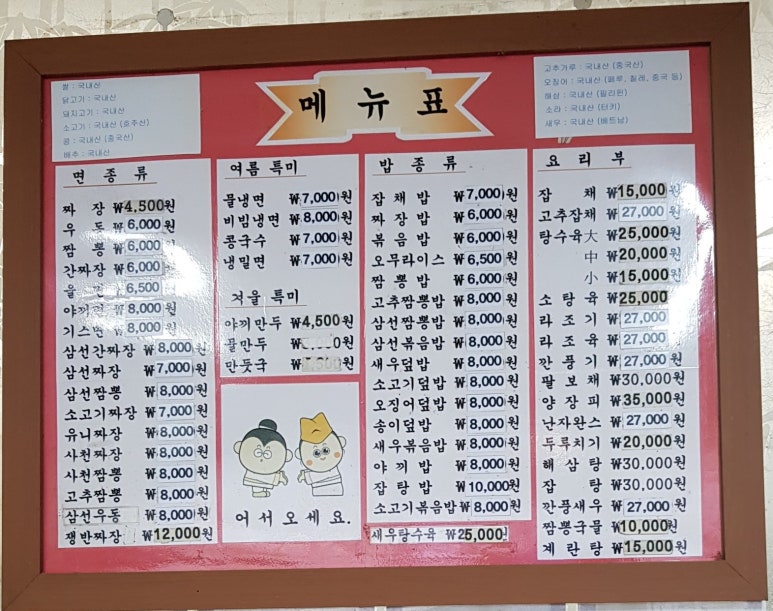 메뉴표
쌀 : 국내산
닭고기 : 국내산
돼지고기 : 국내산
소고기 : 국내산 (호주산)
콩 : 국내산 (중국산)
배추 : 국내산
고추가루 : 국내산 (중국산)
오징어 : 국내산 (페루, 칠레, 중국 등)
해삼 : 국내산 (필리핀)
소라 : 국내산 (터키)
새우 : 국내산 (베트남)
면 종 류
짜 장 ₩4,500원
우 동 ₩6,000원
짬 뽕 ₩6,000원
간짜장 ₩6,000원
울 면 ₩6,500
야끼면 ₩8,000원
기스면 ₩8,000원
삼선간짜장 ₩8,000원
삼선짜장 ₩7,000원
삼선짬뽕 ₩8,000원
소고기짜장 ₩7,000원
유니짜장 ₩8,000원
사천짜장 ₩8,000원
사천짬뽕 ₩8,000원
고추짬뽕 ₩8,000원
삼선우동 ₩8,000원
쟁반짜장 ₩12,000원
여름 특미
물냉면 ₩7,000원
비빔냉면 ₩8,000원
콩국수 ₩7,000원
냉밀면 ₩7,000원
겨울 특미
야끼만두 ₩4,500원
물만두 ₩ 원
만둣국 ₩ 원
어서오세요.
밥 종 류
잡채밥 ₩7,000원
짜장밥 ₩6,000원
볶음밥 ₩6,000원
오무라이스 ₩6,500원
짬뽕밥 ₩6,000원
고추짬뽕밥 ₩8,000원
삼선짬뽕밥 ₩8,000원
삼선볶음밥 ₩8,000원
새우덮밥 ₩8,000원
소고기덮밥 ₩8,000원
오징어덮밥 ₩8,000원
송이덮밥 ₩8,000원
새우볶음밥 ₩8,000원
야끼밥 ₩8,000원
잡탕밥 ₩10,000원
소고기볶음밥 ₩8,000원
새우탕수육 ₩25,000원
요 리 부
잡 채 ₩15,000원
고추잡채 ₩27,000원
탕수육大 ₩25,000원
中 ₩20,000원
小 ₩15,000원
소탕육 ₩25,000
라조기 ₩27,000
라조육 ₩27,000
깐풍기 ₩27,000원
팔보채 ₩30,000원
양장피 ₩35,000원
난자완스 ₩27,000원
두루치기 ₩20,000원
해삼탕 ₩30,000원
잡 탕 ₩30,000원
깐풍새우 ₩27,000원
짬뽕국물 ₩10,000원
계란탕 ₩15,000원